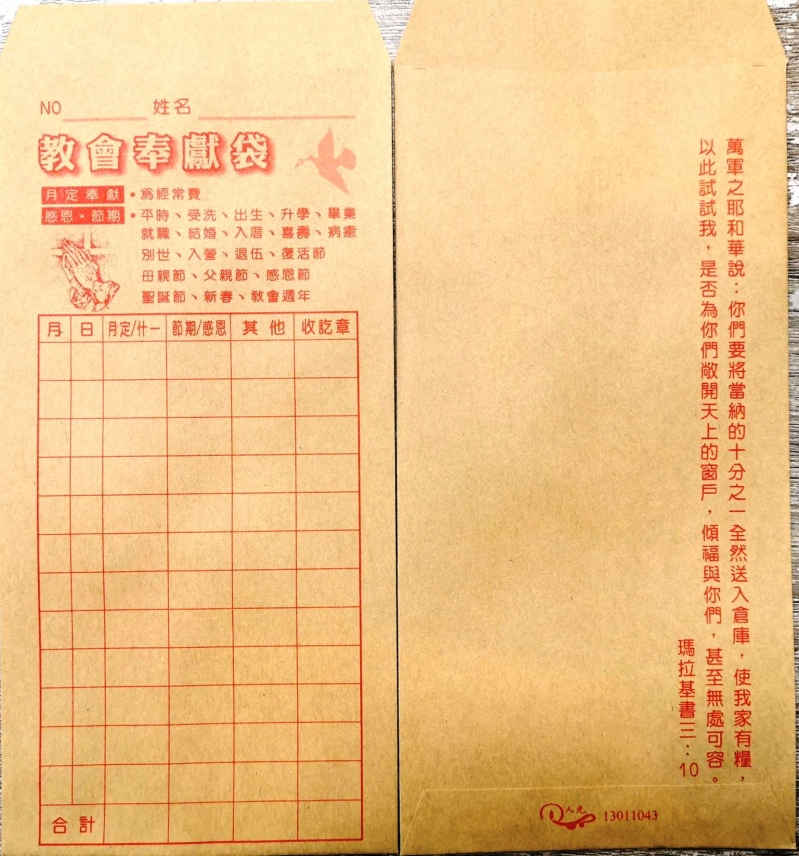 NO 姓名
教會奉獻袋
月定奉獻•為經常費
感恩•節期•平時、受洗、出生、升學、畢業
就職、結婚、入厝、喜壽、病癒
別世、入營、退伍、復活節
母親節、父親節、感恩節
聖誕節、新春、教會週年
月 日 月定/什一 節期/感恩 其他 收訖章
合計
萬軍之耶和華說：你們要將當納的十分之一全然送入倉庫，使我家有糧，
以此試試我，是否為你們敞開天上的窗戶，傾福與你們，甚至無處可容。
瑪拉基書三：10
人光 13011043